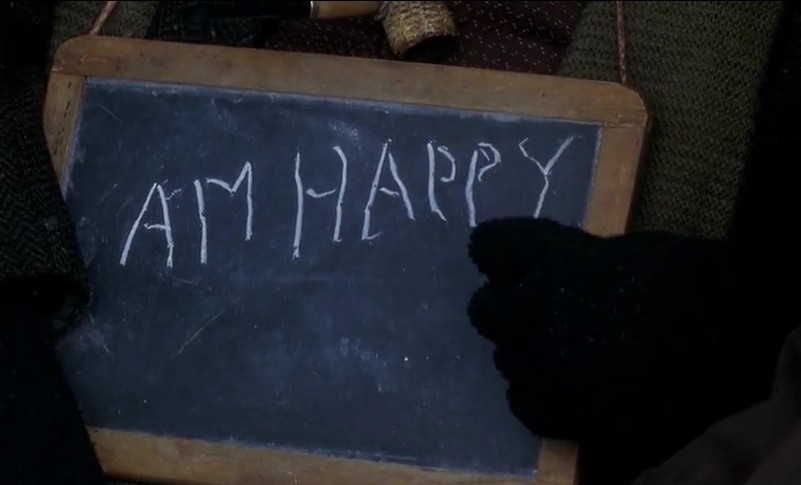 AM HAPPY